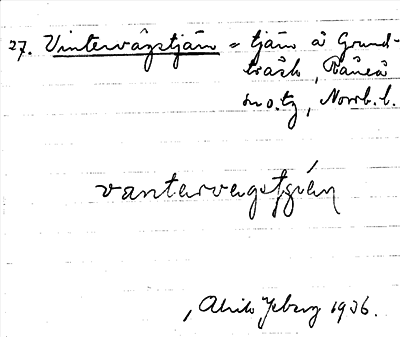 27. Vintervägstjärn = tjärn å Grund-
träsk, Råneå
sn o. tg, Norrb. l.
vantervegstjæn
1936.